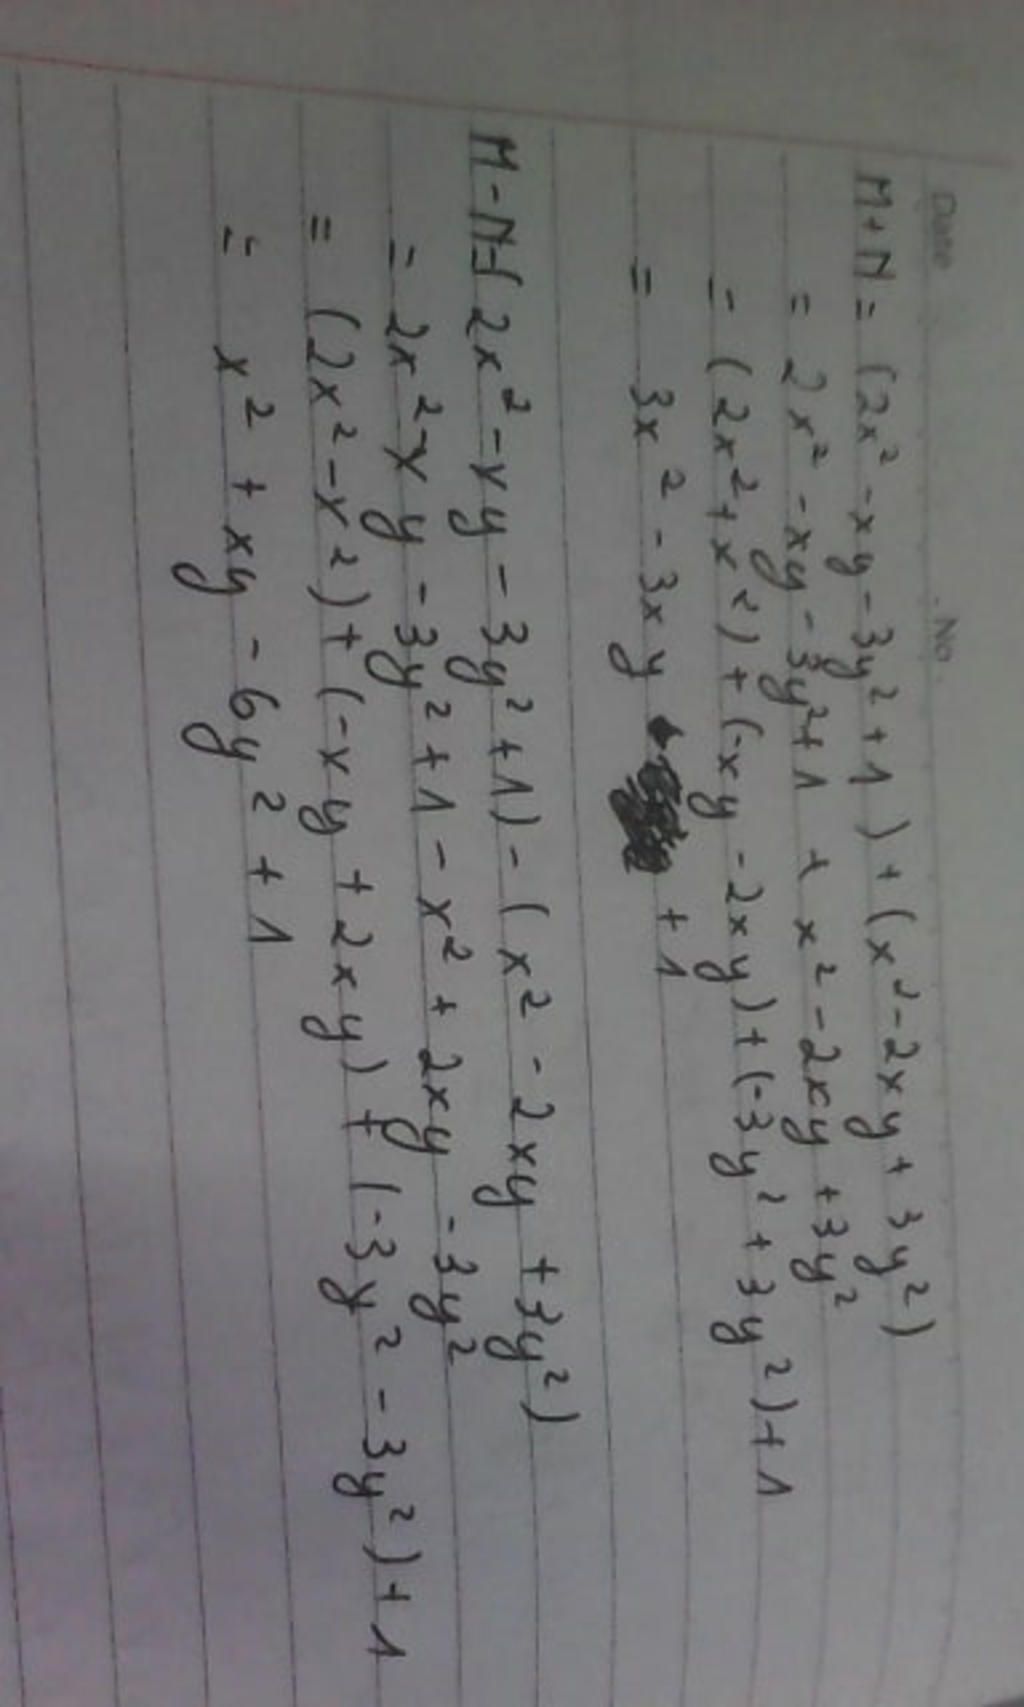 Date No.
M+N = (2x² - xy - 3y² + 1) + (x² - 2xy + 3y²)
= 2x² - xy - 3y² + 1 + x² - 2xy + 3y²
= (2x² + x²) + (-xy - 2xy) + (-3y² + 3y²) + 1
= 3x² - 3xy + 1
M - N = (2x² - xy - 3y² + 1) - (x² - 2xy + 3y²)
= 2x² - xy - 3y² + 1 - x² + 2xy - 3y²
= (2x² - x²) + (-xy + 2xy) + (-3y² - 3y²) + 1
= x² + xy - 6y² + 1